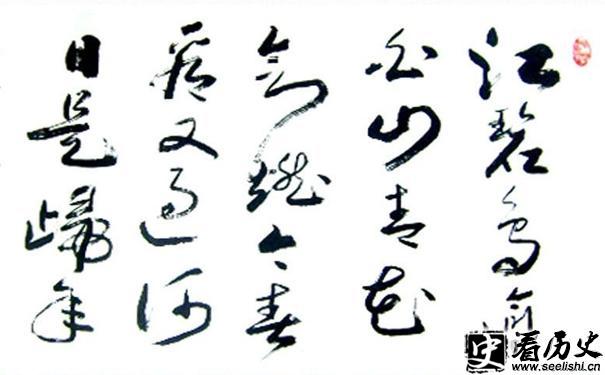 江碧鳥逾
白山青花
欲燃今春
看又過何
日是歸年
史 看历史
www.seelishi.cn